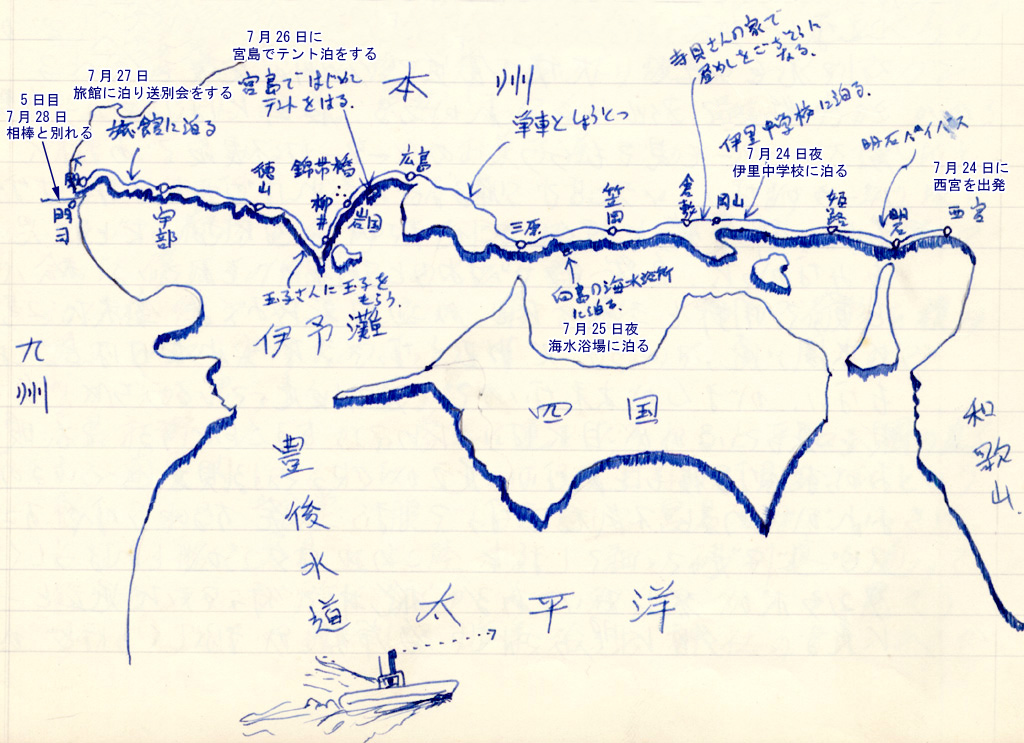 7月26日に
宮島でテント泊をする
宮島ではじめて
テントをはる。
7月27日
旅館に泊り送別会をする
旅館に泊る
5日目
7月28日
相棒と別れる
本州
寺見さんの家で
昼めしをごちそうに
なる。
単車としょうとつ
伊里中学校に泊る。
7月24日夜
伊里中学校に泊る
明石バイパス
7月24日に
西宮を出発
下関
門司
宇部
徳山
錦帯橋
柳井
岩国
広島
三原
笠岡
倉敷
岡山
姫路
明石
西宮
玉子さんに玉子を
もらう。
向島の海水浴所
に泊る。
7月25日夜
海水浴場に泊る
伊予灘
九州
四国
和歌山
豊後水道
太平洋